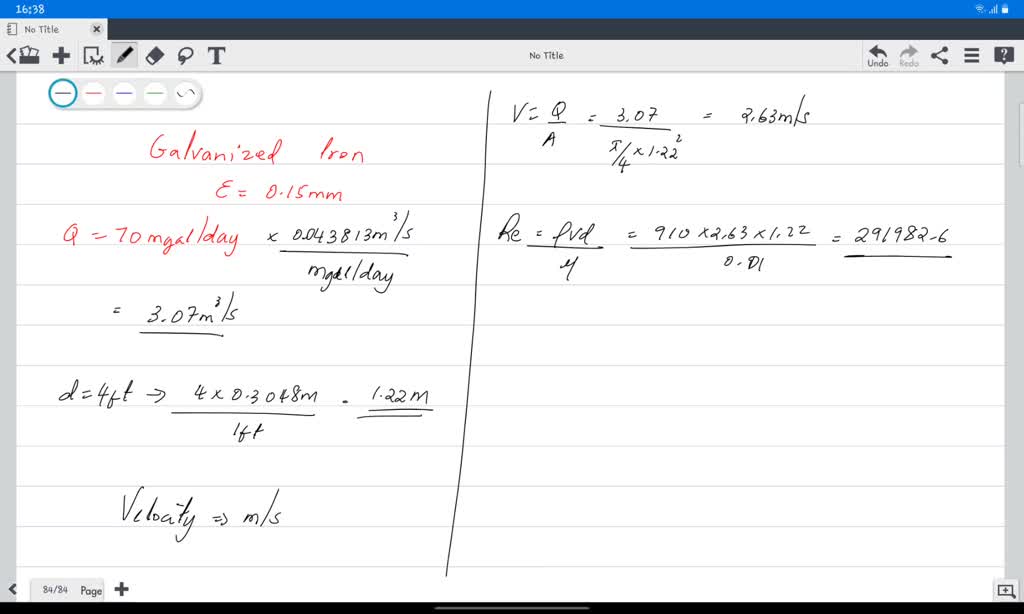 16:38
No Title
No Title
Undo
Redo
Galvanized Iron
ε = 0.15mm
Q = 70 mgal/day × 0.043813m³/s
mgal/day
= 3.07m³/s
d = 4ft ⇒ 4 × 0.3048m = 1.22m
1ft
Velocity ⇒ m/s
V = Q = 3.07 = 2.63m/s
A π/4 × 1.22²
Re = ρvd = 910 × 2.63 × 1.22 = 291982.6
μ 0.01
84/84 Page